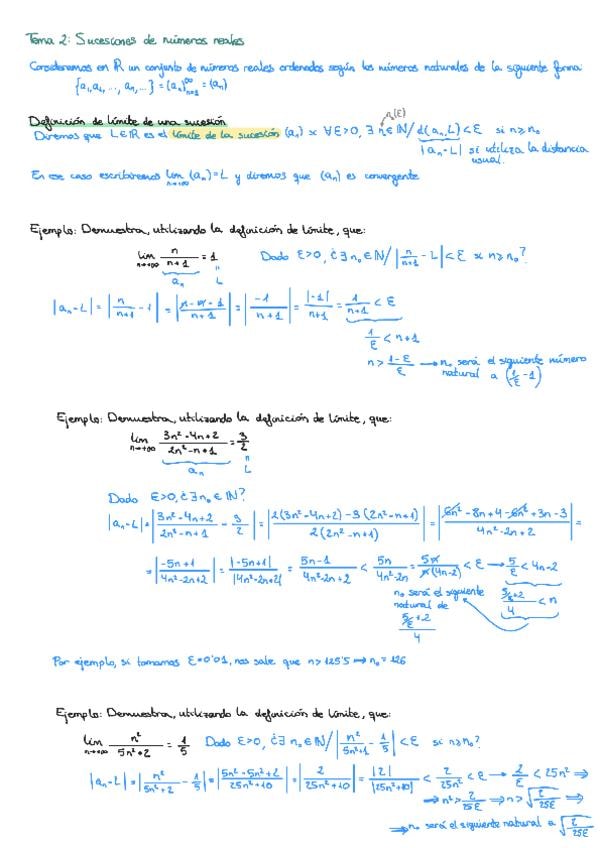 Tema 2: Sucesiones de números reales
Consideramos en ℝ un conjunto de números reales ordenados según los números naturales de la siguiente forma:
{a₁, a₂, ..., aₙ, ...} = (aₙ)ₙ₌₁^∞ = (aₙ)
n₀(ε)
Definición de límite de una sucesión
Diremos que L∈ℝ es el límite de la sucesión (aₙ) si ∀ε>0, ∃ n₀∈ℕ / d(aₙ, L) < ε si n≥n₀
|aₙ-L| si utiliza la distancia
usual.
En ese caso escribiremos lim n→+∞ (aₙ) = L y diremos que (aₙ) es convergente
Ejemplo: Demuestra, utilizando la definición de límite, que:
lim n→+∞ n/(n+1) = 1 Dado ε>0, ¿∃ n₀∈ℕ / |n/(n+1) - L| < ε si n≥n₀?
aₙ L
|aₙ-L| = |n/(n+1) - 1| = |(n-n-1)/(n+1)| = |-1/(n+1)| = |-1|/(n+1) = 1/(n+1) < ε
1/ε < n+1
n > (1-ε)/ε → n₀ será el siguiente número
natural a (1/ε - 1)
Ejemplo: Demuestra, utilizando la definición de límite, que:
lim n→+∞ (3n²-4n+2)/(2n²-n+1) = 3/2
aₙ L
Dado ε>0, ¿∃ n₀∈ℕ?
|aₙ-L| = |(3n²-4n+2)/(2n²-n+1) - 3/2| = |(2(3n²-4n+2)-3(2n²-n+1))/(2(2n²-n+1))| = |(6n²-8n+4-6n²+3n-3)/(4n²-2n+2)| =
= |(-5n+1)/(4n²-2n+2)| = |-5n+1|/|4n²-2n+2| = (5n-1)/(4n²-2n+2) < 5n/(4n²-2n) = 5n/(n(4n-2)) < ε → 5/ε < 4n-2
n₀ será el siguiente
natural de
(5/ε+2)/4 < n
(5/ε+2)/4
Por ejemplo, si tomamos ε=0'01, nos sale que n>125'5 → n₀=126
Ejemplo: Demuestra, utilizando la definición de límite, que:
lim n→+∞ n²/(5n²+2) = 1/5 Dado ε>0, ¿∃ n₀∈ℕ / |n²/(5n²+1) - 1/5| < ε si n≥n₀?
|aₙ-L| = |n²/(5n²+2) - 1/5| = |(5n²-5n²+2)/(25n²+10)| = |2/(25n²+10)| = |2|/|25n²+10| < 2/(25n²) < ε → 2/ε < 25n² ⇒
⇒ n² > 2/(25ε) ⇒ n > √(2/(25ε)) ⇒
⇒ n₀ será el siguiente natural a √(2/(25ε))